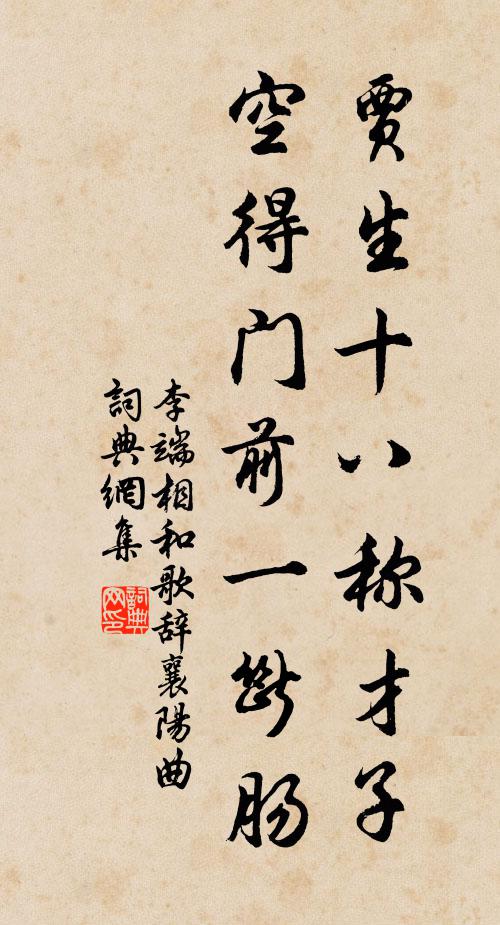 贾生十八称才子
空得门前一断肠
李端相和歌辞襄陽曲
詞典網集
詞典网印